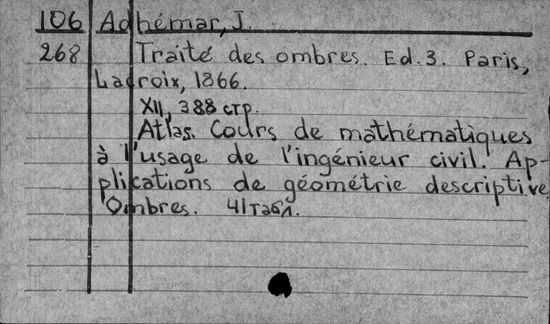 106 Adhémar, J.
268 Traité des ombres. Ed. 3. Paris,
Lacroix, 1866.
XII, 388 стр.
Atlas. Cours de mathématiques
à l'usage de l'ingénieur civil. Ap-
plications de géométrie descriptive
Ombres. 41 табл.